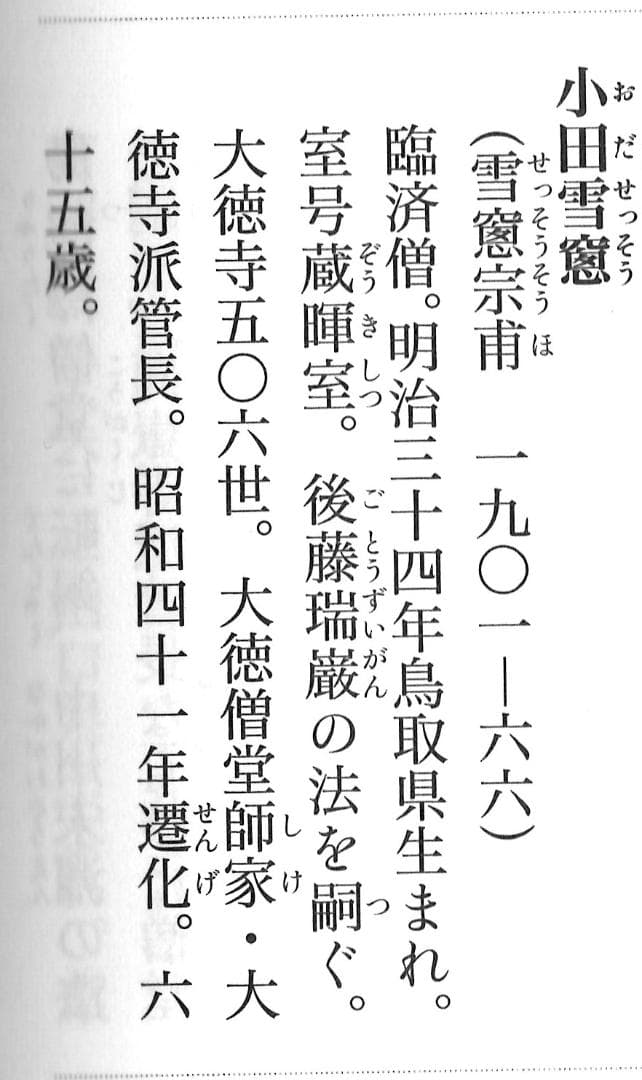 小田雪窻
（雪窻宗甫　一九〇一―六六）
臨済僧。明治三十四年鳥取県生まれ。
室号蔵暉室。　後藤瑞巌の法を嗣ぐ。
大徳寺五〇六世。　大徳僧堂師家・大
徳寺派管長。　昭和四十一年遷化。六
十五歳。
おだせっそう
せっそうそうほ
ぞうきしつ
ごとうずいがん
つ
しけ
せんげ